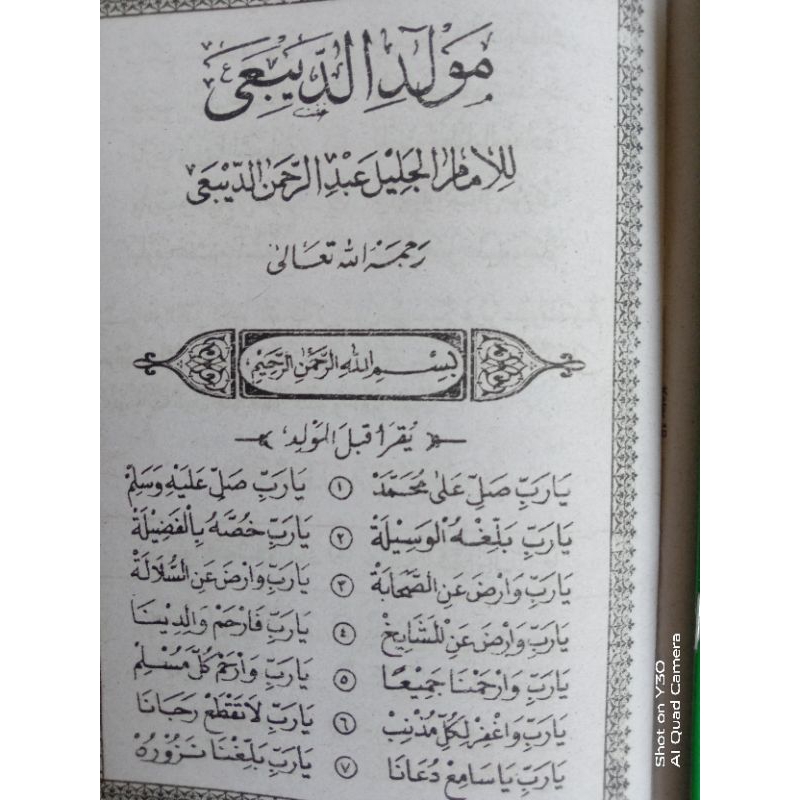 مَوْلِدُ الدِّيْبَعِي
لِلْاِمَامِ الْجَلِيْلِ عَبْدِ الرَّحْمٰنِ الدِّيْبَعِي
رَحِمَهُ اللهُ تَعَالىٰ
بِسْمِ اللهِ الرَّحْمٰنِ الرَّحِيْمِ
يُقْرَأُ قَبْلَ الْمَوْلِدِ
يَارَبِّ صَلِّ عَلىٰ مُحَمَّدْ ١ يَارَبِّ صَلِّ عَلَيْهِ وَسَلِّمْ
يَارَبِّ بَلِّغْهُ الْوَسِيْلَةْ ٢ يَارَبِّ خُصَّهُ بِالْفَضِيْلَةْ
يَارَبِّ وَارْضَ عَنِ الصَّحَابَةْ ٣ يَارَبِّ وَارْضَ عَنِ السُّلَالَةْ
يَارَبِّ وَارْضَ عَنِ الْمَشَايِخْ ٤ يَارَبِّ فَارْحَمْ وَالِدِيْنَا
يَارَبِّ وَارْحَمْنَا جَمِيْعًا ٥ يَارَبِّ وَارْحَمْ كُلَّ مُسْلِمْ
يَارَبِّ وَاغْفِرْ لِكُلِّ مُذْنِبْ ٦ يَارَبِّ لَاتَقْطَعْ رَجَانَا
يَارَبِّ يَاسَامِعْ دُعَانَا ٧ يَارَبِّ بَلِّغْنَا نَزُوْرُهْ
Shot on Y30
AI Quad Camera